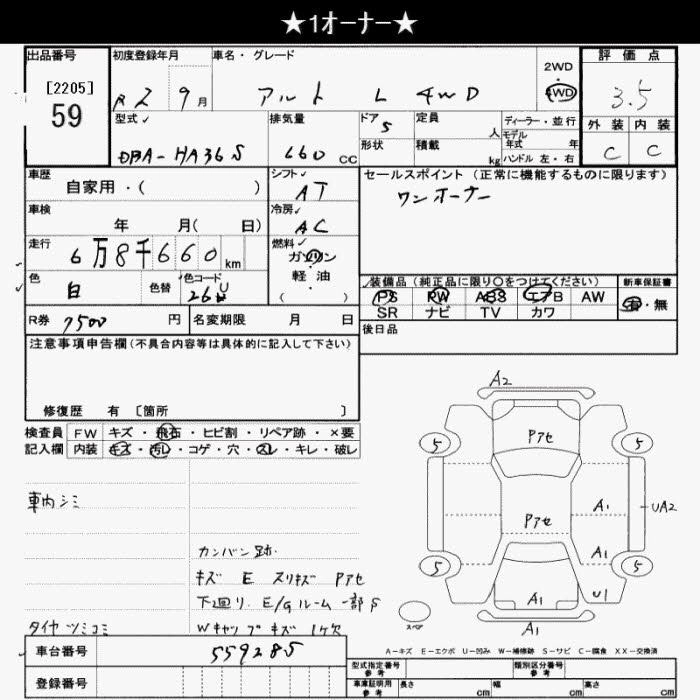 ★1オーナー★
出品番号 初度登録年月 車名・グレード 2WD 4WD 評価点
[2205]
59
R2 9月 アルト L 4WD 3.5
型式✓ 排気量 ドア 5 定員 人 ディーラー・並行 外装 内装
モデル年式 年
DBA-HA36S 660 CC 形状 積載 kg ハンドル 左・右 C C
車歴 自家用・( ) シフト✓ AT セールスポイント(正常に機能するものに限ります)
ワンオーナー
車検 年 月( 日) 冷房✓ AC
走行 6万8千660km 燃料✓ ガソリン・軽油
( )
色 白 色替 色コード 26U
装備品(純正品に限り○をつけてください) 新車保証書
PS PW ABS エアB AW 有・無
SR ナビ TV カワ
R券 7500円 名変期限 月 日 後日品
注意事項申告欄(不具合内容等は具体的に記入して下さい)
修復歴 有 〔箇所 〕
検査員 FW キズ・飛石・ヒビ割・リペア跡・×要
記入欄 内装 キズ・汚レ・コゲ・穴・スレ・キレ・破レ
車内シミ
カンバン跡
キズ E スリキズ Pアセ
下回り. E/Gルーム 一部S
タイヤツミコミ Wキャップキズ 1ケ欠
A2
5 Pアセ 5
A1 UA2
Pアセ
A1
5 5
A1 U1
スペア A1
A-キズ E-エクボ U-凹み W-補修跡 S-サビ C-腐食 XX-交換済
車台番号 559285 型式指定番号 参考 類別区分番号 参考
登録番号 車庫証明用 参考 長さ cm 幅 cm 高さ cm